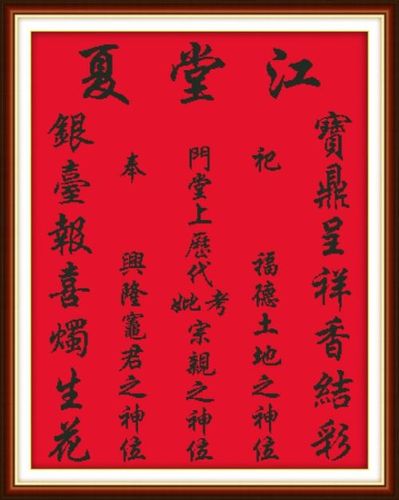 江堂夏
寶鼎呈祥香結彩
祀 福德土地之神位
門堂上歷代考妣宗親之神位
奉 興隆竈君之神位
銀臺報喜燭生花